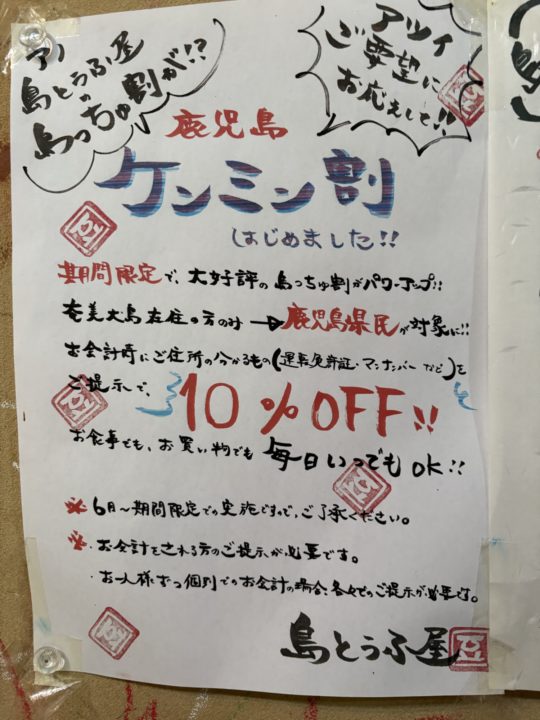 アノ
島とうふ屋
の
島っちゅ割が!?
アツイ
ご要望に
お応えして!!
鹿児島
ケンミン割
はじめました!!
期間限定で、大好評の島っちゅ割がパワーアップ!!
奄美大島在住の方のみ→鹿児島県民が対象に!!
お会計時にご住所の分かるもの(運転免許証・マンナンバーなど)を
ご提示で、
10%OFF!!
お食事でも、お買い物でも毎日いつでもOK!!
※6月~期間限定での実施ですので、ご了承ください。
※・お会計をされる方のご提示が必要です。
・お一人様ずつ個別でのお会計の場合、各々でのご提示が必要です。
島とうふ屋